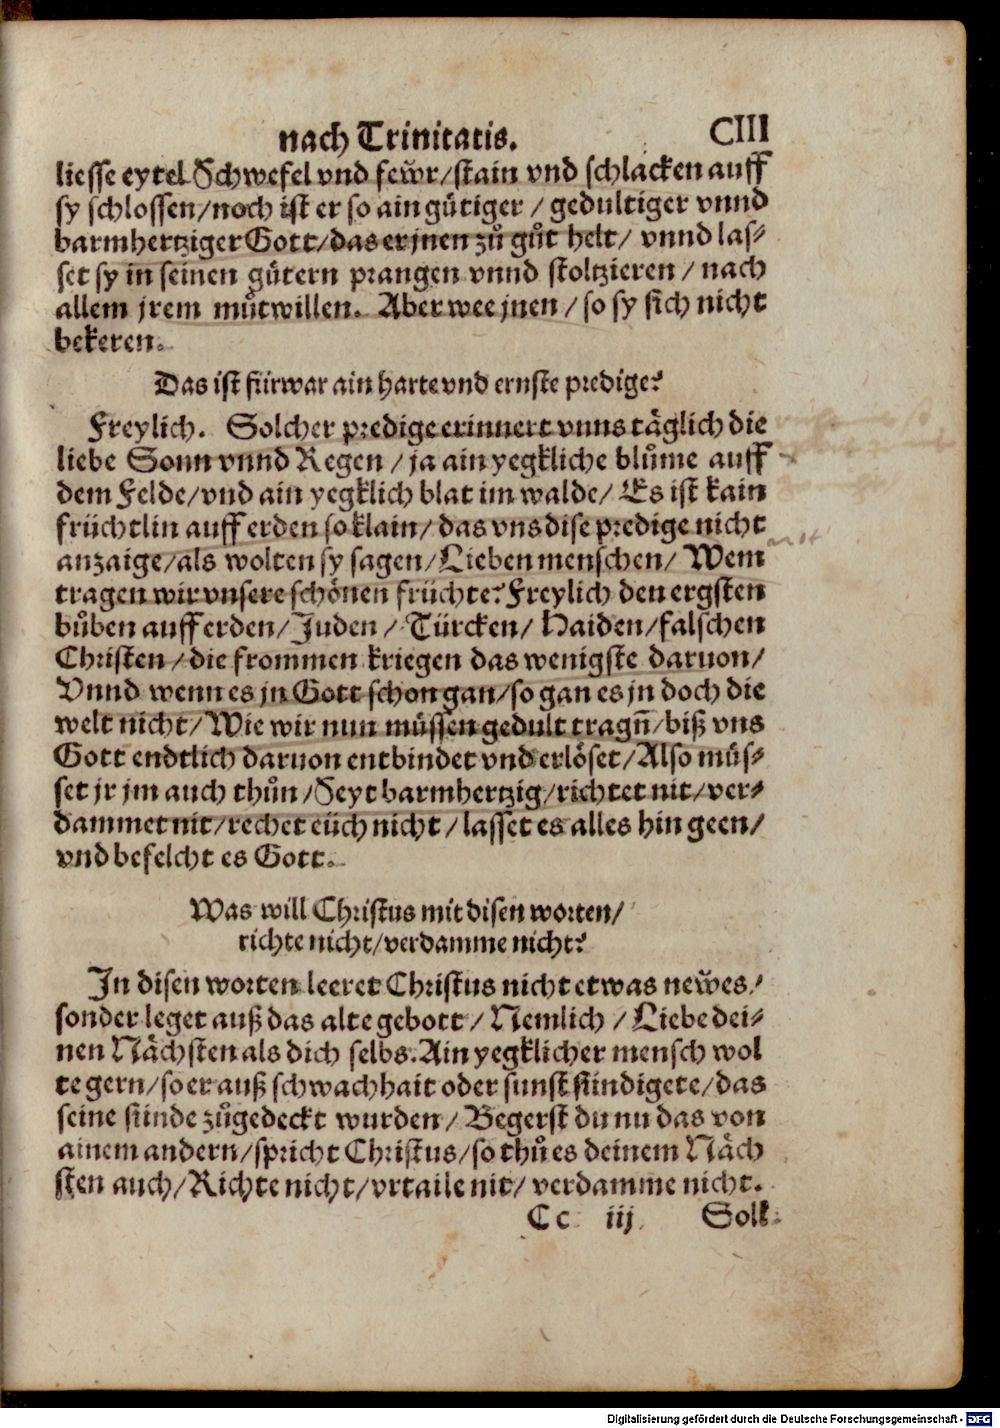 nach Trinitatis.
CIII
liesse eytel Schwefel vnd feẅr/stain vnd schlacken auff
sy schlossen/noch ist er so ain gütiger / gedultiger vnnd
barmhertziger Gott/das er jnen zů gůt helt/ vnnd las⸗
set sy in seinen gütern prangen vnnd stoltzieren / nach
allem jrem můtwillen. Aber wee jnen / so sy sich nicht
bekeren.
Das ist fürwar ain harte vnd ernste predige?
Freylich. Solcher predige erinnert vnns täglich die
liebe Sonn vnnd Regen / ja ain yegkliche blůme auff
dem Felde/vnd ain yegklich blat im walde/ Es ist kain
früchtlin auff erden so klain/ das vns dise predige nicht
anzaige/als wolten sy sagen/Lieben menschen/ Wem
tragen wir vnsere schönen früchte? Freylich den ergsten
bůben auff erden/Juden / Türcken/ Haiden/falschen
Christen/die frommen kriegen das wenigste daruon/
Vnnd wenn es jn Gott schon gan/so gan es jn doch die
welt nicht/Wie wir nun müssen gedult tragn̄/biß vns
Gott endtlich daruon entbindet vnd erlöset/Also müs⸗
set jr jm auch thůn/Seyt barmhertzig/richtet nit/ver⸗
dammet nit/rechet eüch nicht/lasset es alles hin geen/
vnd befelcht es Gott.
Was will Christus mit disen worten/
richte nicht/verdamme nicht?
In disen worten leeret Christus nicht etwas neẅes/
sonder leget auß das alte gebott/ Nemlich / Liebe dei⸗
nen Nächsten als dich selbs. Ain yegklicher mensch wol
te gern/so er auß schwachhait oder sunst sündigete/das
seine sünde zůgedeckt wurden/ Begerst du nu das von
ainem andern/spricht Christus/so thů es deinem Näch
sten auch/Richte nicht/vrtaile nit/ verdamme nicht.
Cc iij Solk
Digitalisierung gefördert durch die Deutsche Forschungsgemeinschaft - DFG